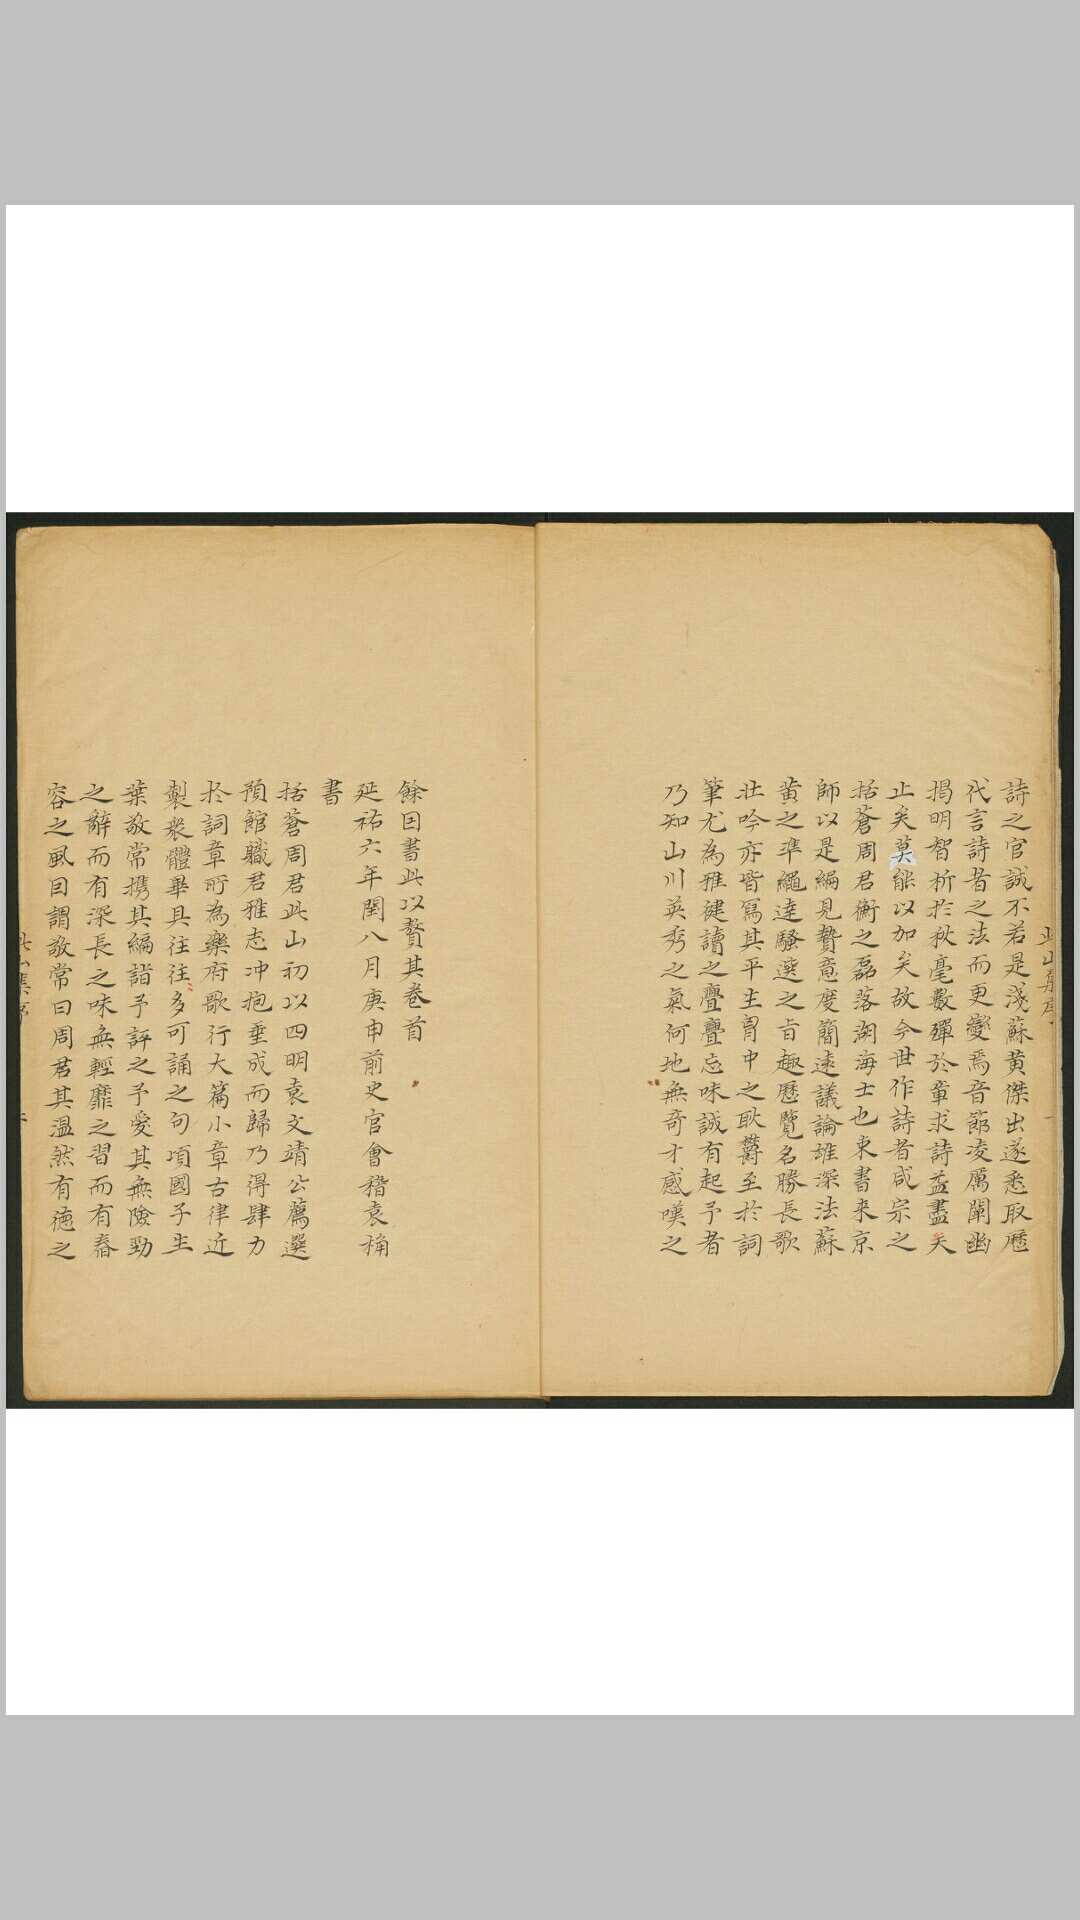 詩之官誠不若是淺蘇黃傑出遂悉取歷
代言詩者之法而更變焉音節凌厲闡幽
揭明智析於秋毫數殫於章求詩益盡矣
止矣莫能以加矣故今世作詩者咸宗之
括蒼周君衡之磊落湖海士也束書来京
師以是編見贄意度簡遠議論雄深法蘇
黄之準繩達騷選之旨趣歷覽名勝長歌
壮吟亦皆寫其平生胷中之耿欝至於詞
筆尤為雅健讀之亹亹忘味誠有起予者
乃知山川英秀之氣何地無奇才感嘆之
餘因書此以贅其卷首
延祐六年閏八月庚申前史官會稽袁桷
書
括蒼周君此山初以四明袁文靖公薦選
預館職君雅志冲抱垂成而歸乃得肆力
扵詞章所為樂府歌行大篇小章古律近
製衆體畢具往往多可誦之句頃國子生
葉敬常携其編詣予評之予愛其無險勁
之辭而有深長之味無輕靡之習而有舂
容之風因謂敬常曰周君其溫然有徳之